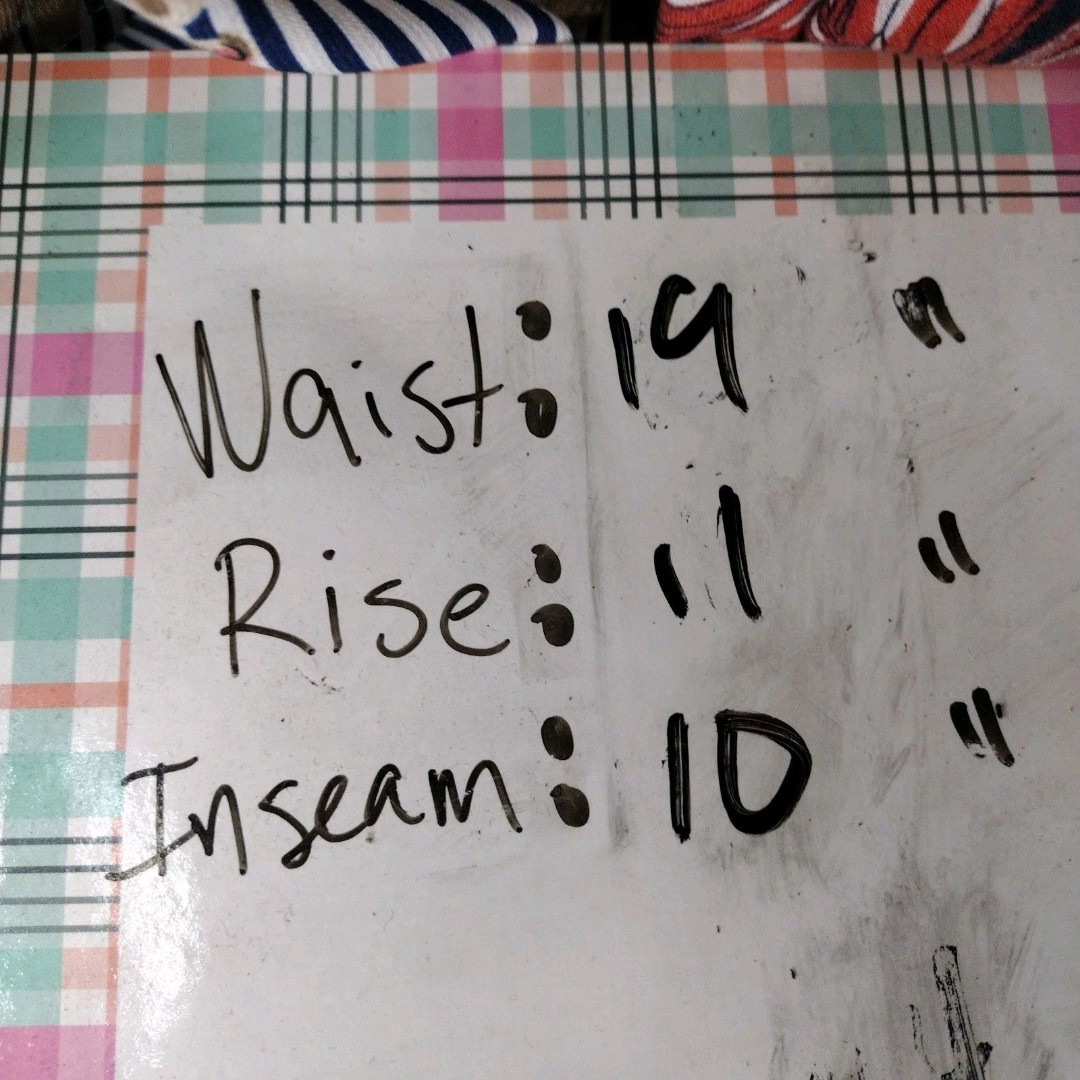 Waist: 19 "
Rise: 11 "
Inseam: 10 "